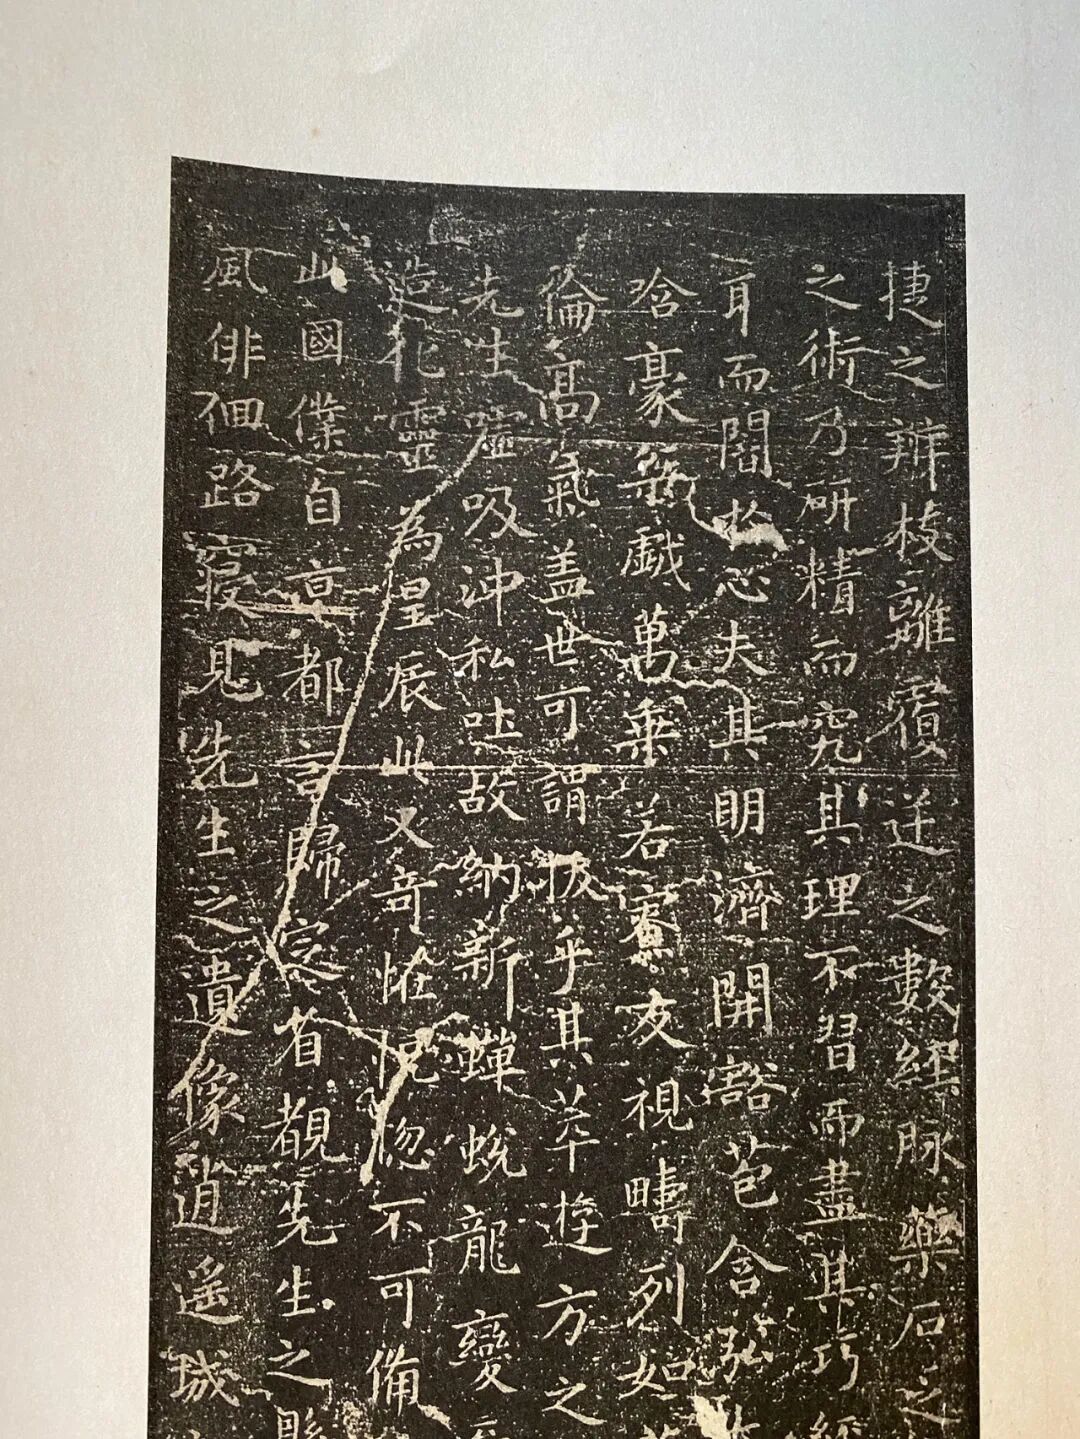 捷之辨枝離覆逆之數經脉藥石之
之術乃研精而究其理不習而盡其巧經
耳而闇於心夫其明濟開豁苞含弘
哈豪桀戱萬乗若寮友視疇列如
倫高氣盖世可謂拔乎其萃遊方之
先生嘘吸沖和吐故納新蟬蛻龍變
造化靈為星辰此又奇恠怳惚不可備
此國僕自京都言歸定省覩先生之縣
風俳佪路寢見先生之遺像逍遥城